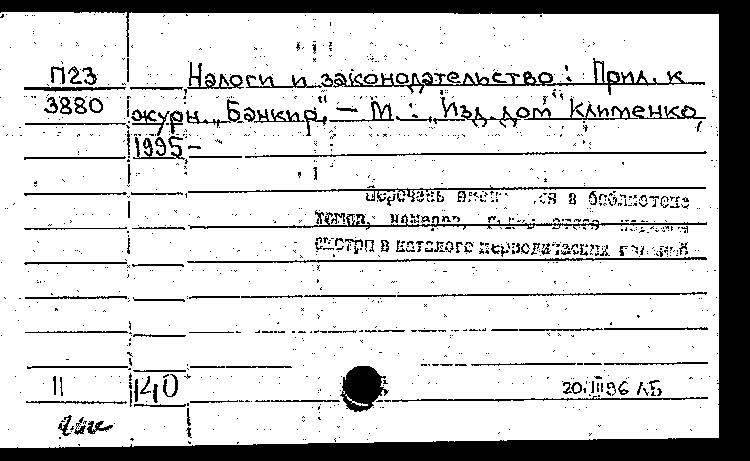 П23 Налоги и законодательство: Прил. к
3880 журн. „Банкир“, – М.: „Изд. дом“ Клименко,
1995 –
Перечень имеющихся в библиотеке
томов, номеров,
смотри в каталоге периодических изданий
11 140 20.III 96 ЛБ